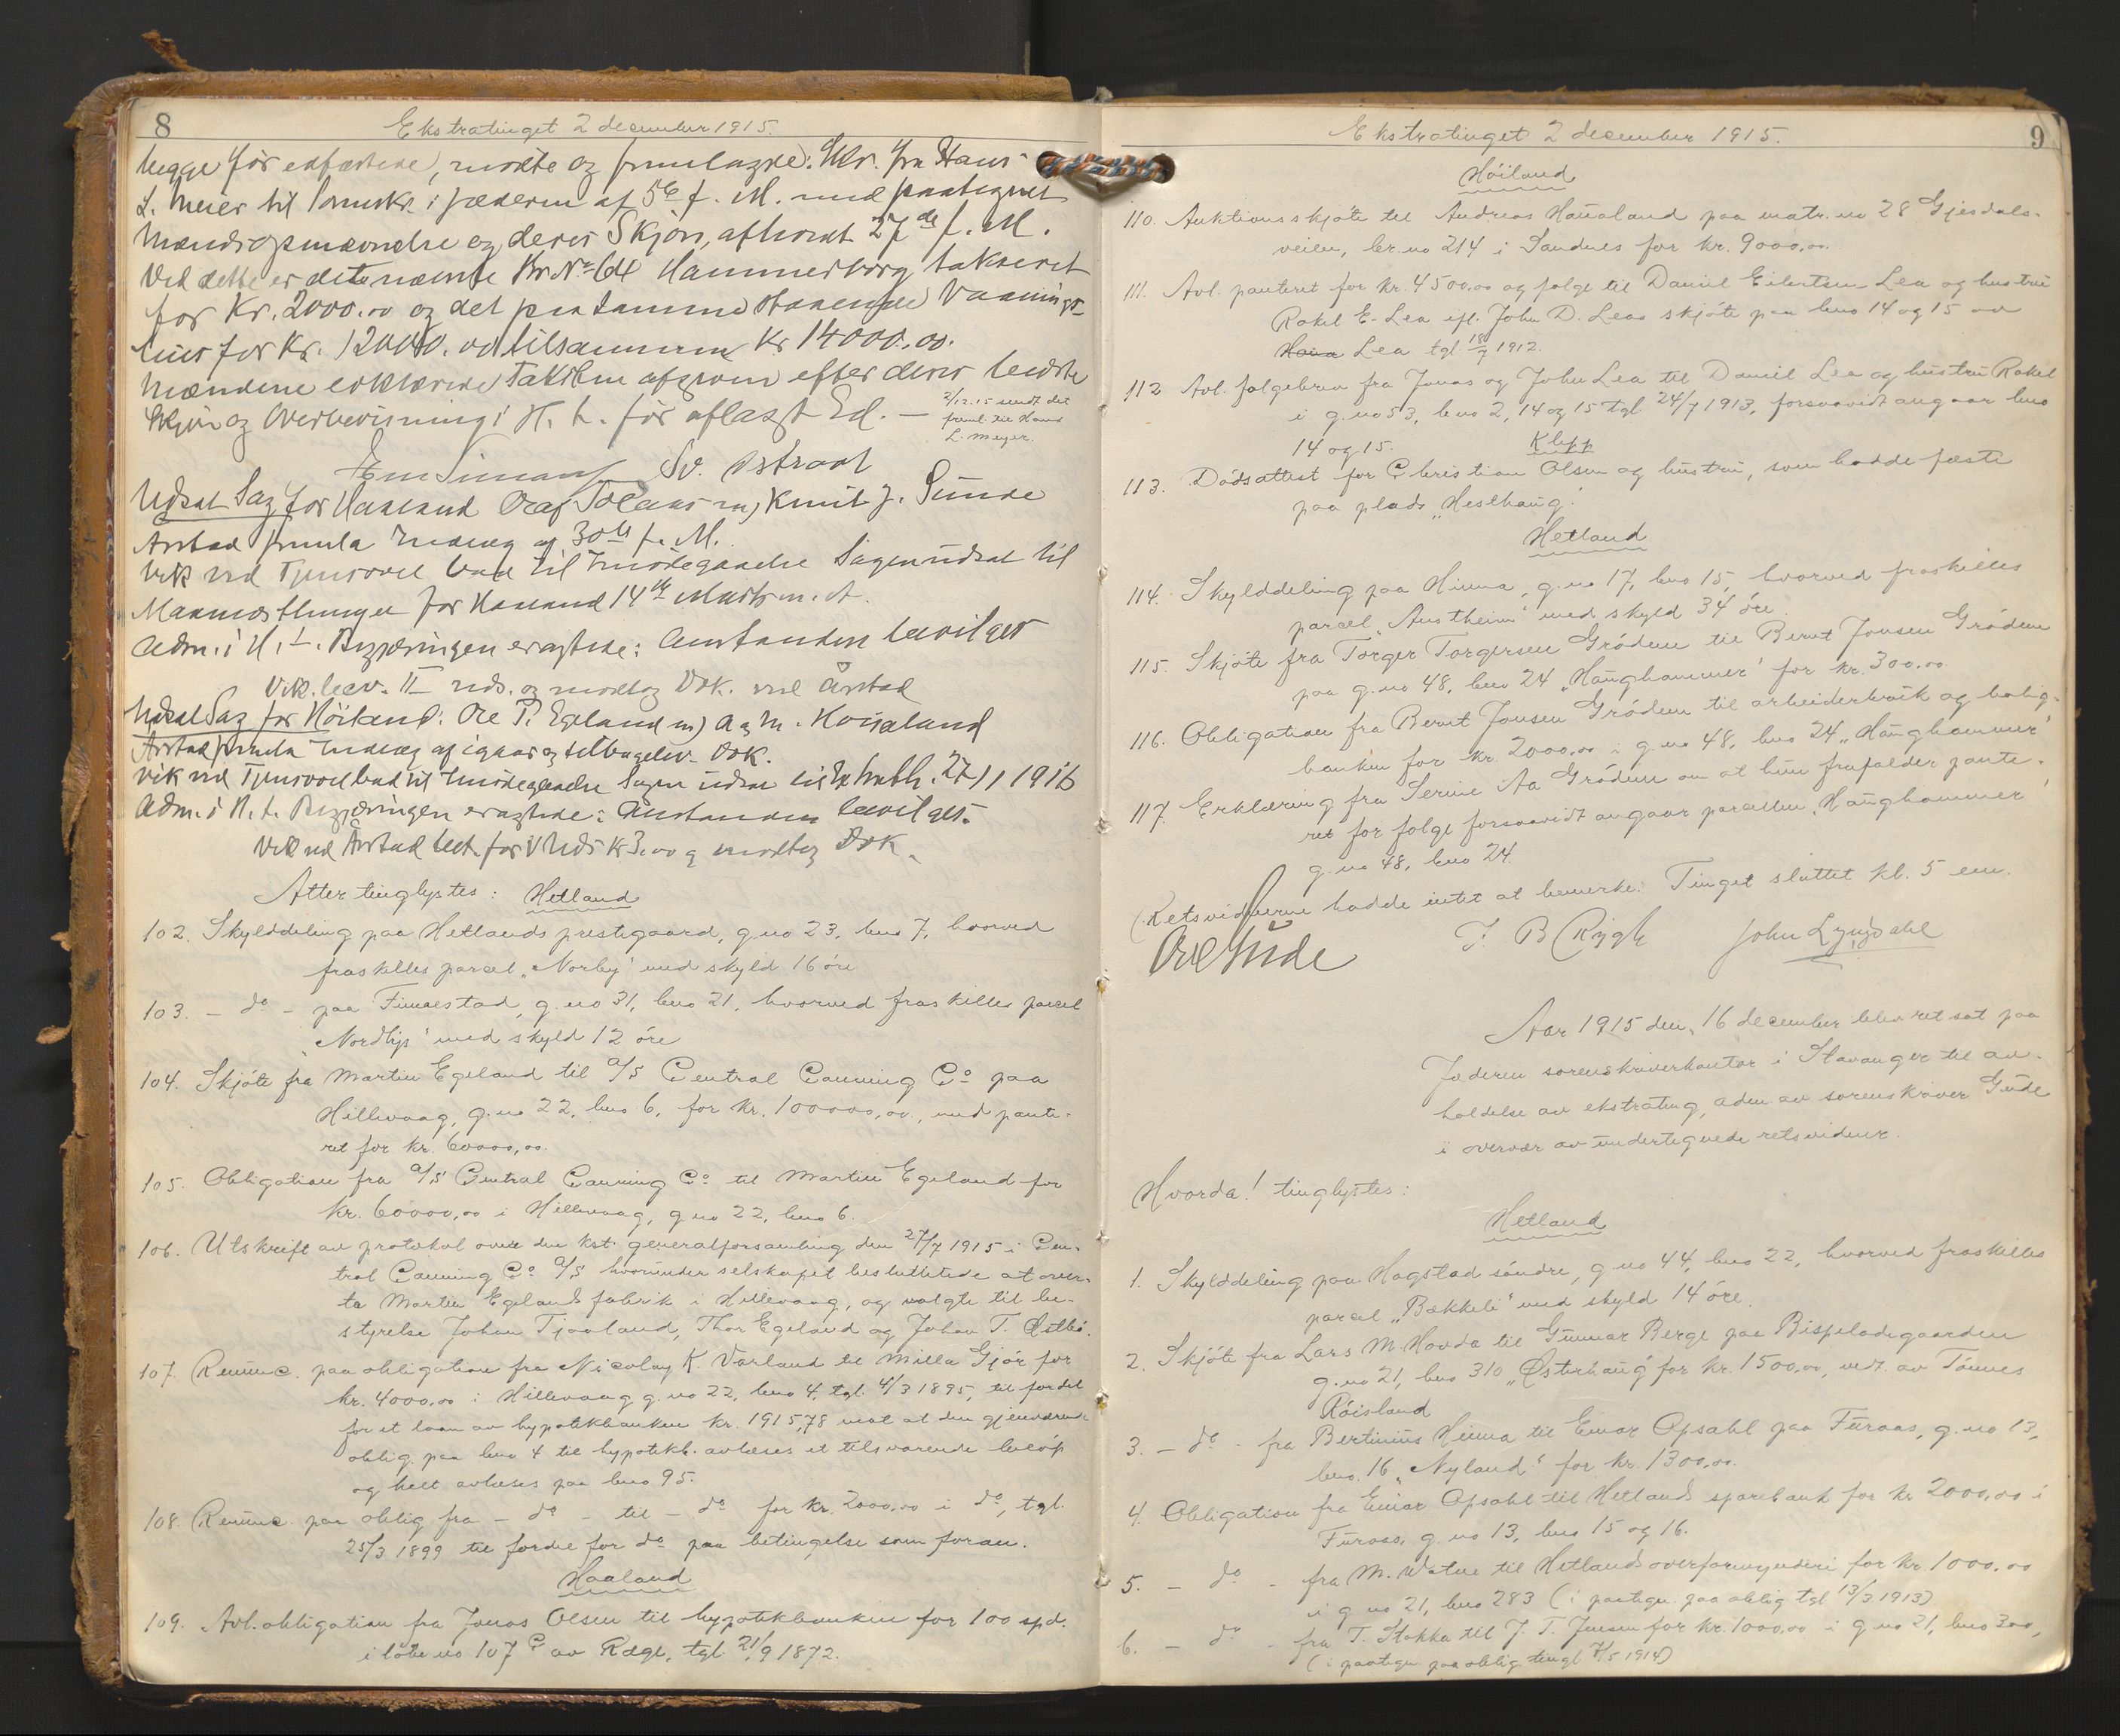 8
Ekstratinget 2 december 1915.
begge før edfæstede, mødte og fremlagde: Udv. fra Hans
L. Meier til Sorenskr. i Jæderen af 5te f. M. med paategnet
Mændsopnævnelse og deres Skjøn, afhoret 27de f. M.
Ved dette er det nævnte Br No 64 Hammerborg takseret
for Kr. 2000.00 og det paa samme staaende Vaanings-
hus for Kr. 12000.00 tilsammen Kr 14000.00.
Mændene erklærede Taksten afgiven efter deres bedste
Skjøn og Overbevisning i H. t. før aflagt Ed. —
2/12.15 sendt det
freml. til Hans
L. Meyer.
Sv. Østraat
Udsat Sag for Haaland Knut J. Sunde
Årstad freml. Indlæg af 30te f. M.
Vik ved Tjensvold bad til Imødegaaelse Sagen udsat til
Maanedsthinget for Haaland 14de Marts n. A.
Adm. i H. t. Begjæringen eragtede: Anstanden bevilget
Vik. lev. II uds. og modtog Dok. ved Årstad
Udsat Sag for Höiland: Ole P. Egeland m) Hoüaland
Årstad fremla Indlæg af igaar og tilbagelev. Dok.
Vik ved Tjensvold bad til Imødegaaelse Sagen udsat til 27/1 1916
Adm. i H. t. Begjæringen eragtede: Anstanden bevilget.
Vik ved Årstad bet. for Uds Kr 3.00 og modtog Dok.
Atter tinglystes: Hetland
102. Skylddeling paa Hetlands prestegaard, g.no 23, bno 7, hvorved
fraskilles parcel „Norby" med skyld 16 öre
103. - do - paa Finnestad, g.no 31, bno 21, hvorved fraskilles parcel
„Nordlys" med skyld 12 öre
104. Skjöte fra Martin Egeland til A/S Central Canning Co paa
Hillevaag, g.no 22, bno 6, for kr. 100000,00, med pante-
ret for kr. 60000,00.
105. Obligation fra A/S Central Canning Co til Martin Egeland for
kr. 60000,00 i Hillevaag, g no 22, bno 6.
106. Utskrift av protokol over den kst. generalforsamling den 27/7 1915 i Cen-
tral Canning Co A/S hvorunder selskapet besluttetede at over-
ta Martin Egelands fabrik i Hillevaag, og valgte til be-
styrelse Johan Tjaaland, Thor Egeland og Johan T. Østbö.
107. Renunc. paa obligation fra Nicolay K. Varland til Milla Gjör for
kr. 4000,00 i Hillevaag g.no 22, bno 4, tgl. 4/3 1895, til fordel
for et laan av hypotekbanken kr. 1915,78 mot at den gjenværende
oblig. paa bno 4 til hypotekb. avlæses et tilsvarende belöp
og helt avlæses paa bno 95.
108. Renunc. paa oblig fra - do - til - do for kr. 2000,00 i do, tgl.
25/3 1899 til fordel for do paa betingelse som foran.
Haaland
109. Avl. obligation fra Jonas Olsen til hypotekbanken for 100 spd.
i löbe no 107 C av Rægе, tgl 21/9 1872.
9
Ekstratinget 2 december 1915.
Höiland
110. Auktionsskjöte til Andreas Haualand paa matr. no 28 Gjesdals-
veien, br.no 214 i Sandnes for kr. 9000,00.
111. Avl. panteret for kr. 4500.00 og folge til Daniel Eilertsen Lea og hustru
Rakel E. Lea efl. John D. Leas skjöte paa bno 14 og 15 av
Lea tgl. 18/7 1912.
112 Avl. folgebrev fra Jonas og John Lea til Daniel Lea og hustru Rakel
i g.no 53, bno 2, 14 og 15 tgl. 24/7 1913, forsaavidt angaar bno
14 og 15.
Klepp
113. Dödsattest for Christian Olsen og hustru, som hadde fæste
paa plads „Heslhaug".
Hetland
114. Skylddeling paa Hinna, g.no 17, bno 15, hvorved fraskilles
parcel „Austheim" med skyld 34 öre.
115. Skjöte fra Torger Torgersen Grödem til Bernt Jonsen Grödem
paa g.no 48, bno 24 „Haughammer" for kr. 300,00
116. Obligation fra Bernt Jonsen Grödem til arbeiderbruk og bolig-
banken for kr. 2000,00 i g.no 48, bno 24 „Haughammer"
117. Erklæring fra Serine Aa Grödem om at hun frafalder pante-
ret for folge forsaavidt angaar parcellen „Haughammer"
g.no 48, bno 24.
(Retsvidnerne hadde intet at bemerke. Tinget sluttet kl. 5 em.
Ove Gude T. B Rygh John Lyngdahl
Aar 1915 den 16 december blev ret sat paa
Jæderen sorenskriverkontor i Stavanger til av-
holdelse av ekstrating, adm av sorenskriver Gude
i overvær av undertegnede retsvidner.
Hvorda! tinglystes:
Hetland
1. Skylddeling paa Hogstad söndre, g no 44, bno 22, hvorved fraskilles
parcel „Bækkeli" med skyld 14 öre.
2. Skjöte fra Lars M. Hovda til Gunnar Berge paa Bispeladegaarden
g.no 21, bno 310 „Østerhaug" for kr. 1500,00, vedt. av Tönnes
Röisland
3. - do - fra Bertinius Hinna til Einar Opsahl paa Furaas, g.no 13,
bno. 16 „Nyland" for kr. 1300,00.
4. Obligation fra Einar Opsahl til Hetlands sparebank for kr 2000,00 i
Furaas, g.no 13, bno 15 og 16.
5. - do - fra M. Watne til Hetlands overformynderi for kr. 1000,00
i g no 21, bno 283 (i paategn. paa oblig tgl 13/3 1913)
6. - do - fra T. Stokka til J. T. Jensen for kr. 1000,00 i g no 21, bno 300,
(i paategn paa oblig tingl 7/5 1914)